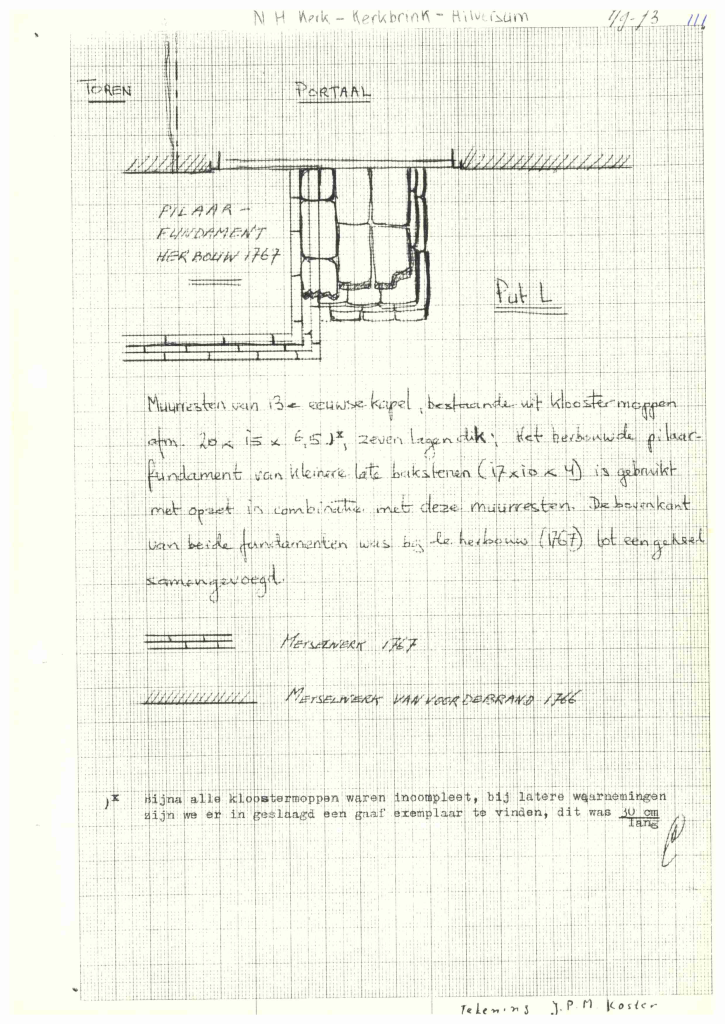 N H Kerk - Kerkbrink - Hilversum
1/9-73 III
TOREN
PORTAAL
PILAAR-
FUNDAMENT
HERBOUW 1767
Put L
Muurresten van 13e eeuwse kapel, bestaande uit kloostermoppen
afm. 20 x 15 x 6,5 )x, zeven lagen dik; Het herbouwde pilaar-
fundament van kleinere late bakstenen (17x10x4) is gebruikt
met opzet in combinatie met deze muurresten. De bovenkant
van beide fundamenten was bij de herbouw (1767) tot een geheel
samengevoegd.
METSELWERK 1767
METSELWERK VAN VOOR DE BRAND 1766
)x Bijna alle kloostermoppen waren incompleet, bij latere waarnemingen
zijn we er in geslaagd een gaaf exemplaar te vinden, dit was 30 cm
lang
Tekening J.P.M Koster